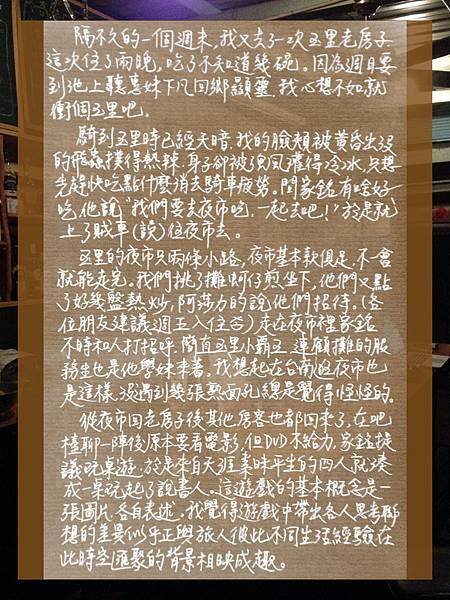 隔不久的一個週末,我又去了一次玉里老房子
這次住了兩晚,吃了不知道幾碗。因為週日要
到池上聽蕙妹下凡回鄉顯靈,我心想不如就
衝個玉里吧.
騎到玉里時已經天暗.我的臉頰被黃昏出沒
的飛蟲撲得熱辣.身子卻被風灌得冷冰,只想
先趕快吃點什麼消去騎車疲勞。問家銘有啥好
吃,他說"我們要去夜市吃.一起去吧!"於是就
上了賊車(誤)往夜市去。
玉里的夜市只兩條小路,夜市基本款俱足,不一會
就能走完。我們挑了攤蚵仔煎坐下,他們又點
了好幾盤熱炒,阿莎力的說他們招待.(各
位朋友建議週五入住)走在夜市裡家銘
不時和人打招呼.簡直玉里小霸王.連顧攤的服
務生也是他學妹本書.我想起在台南逛夜市也
是這樣.沒遇到幾張熟面孔總是覺得怪怪的。
從夜市回老房子後其他房客也都回來了,在吧
檯聊一陣後原本要看電影,但DVD不給力.家銘提
議玩桌遊.於是來自天涯素昧平生的四人就湊
成一桌玩起了說書人.這遊戲的基本概念是一
張圖片.各自表述.我覺得遊戲中帶出各人思考聯
想的差異似乎正與旅人彼此不同生活經驗在
此時空匯聚的背景相映成趣。